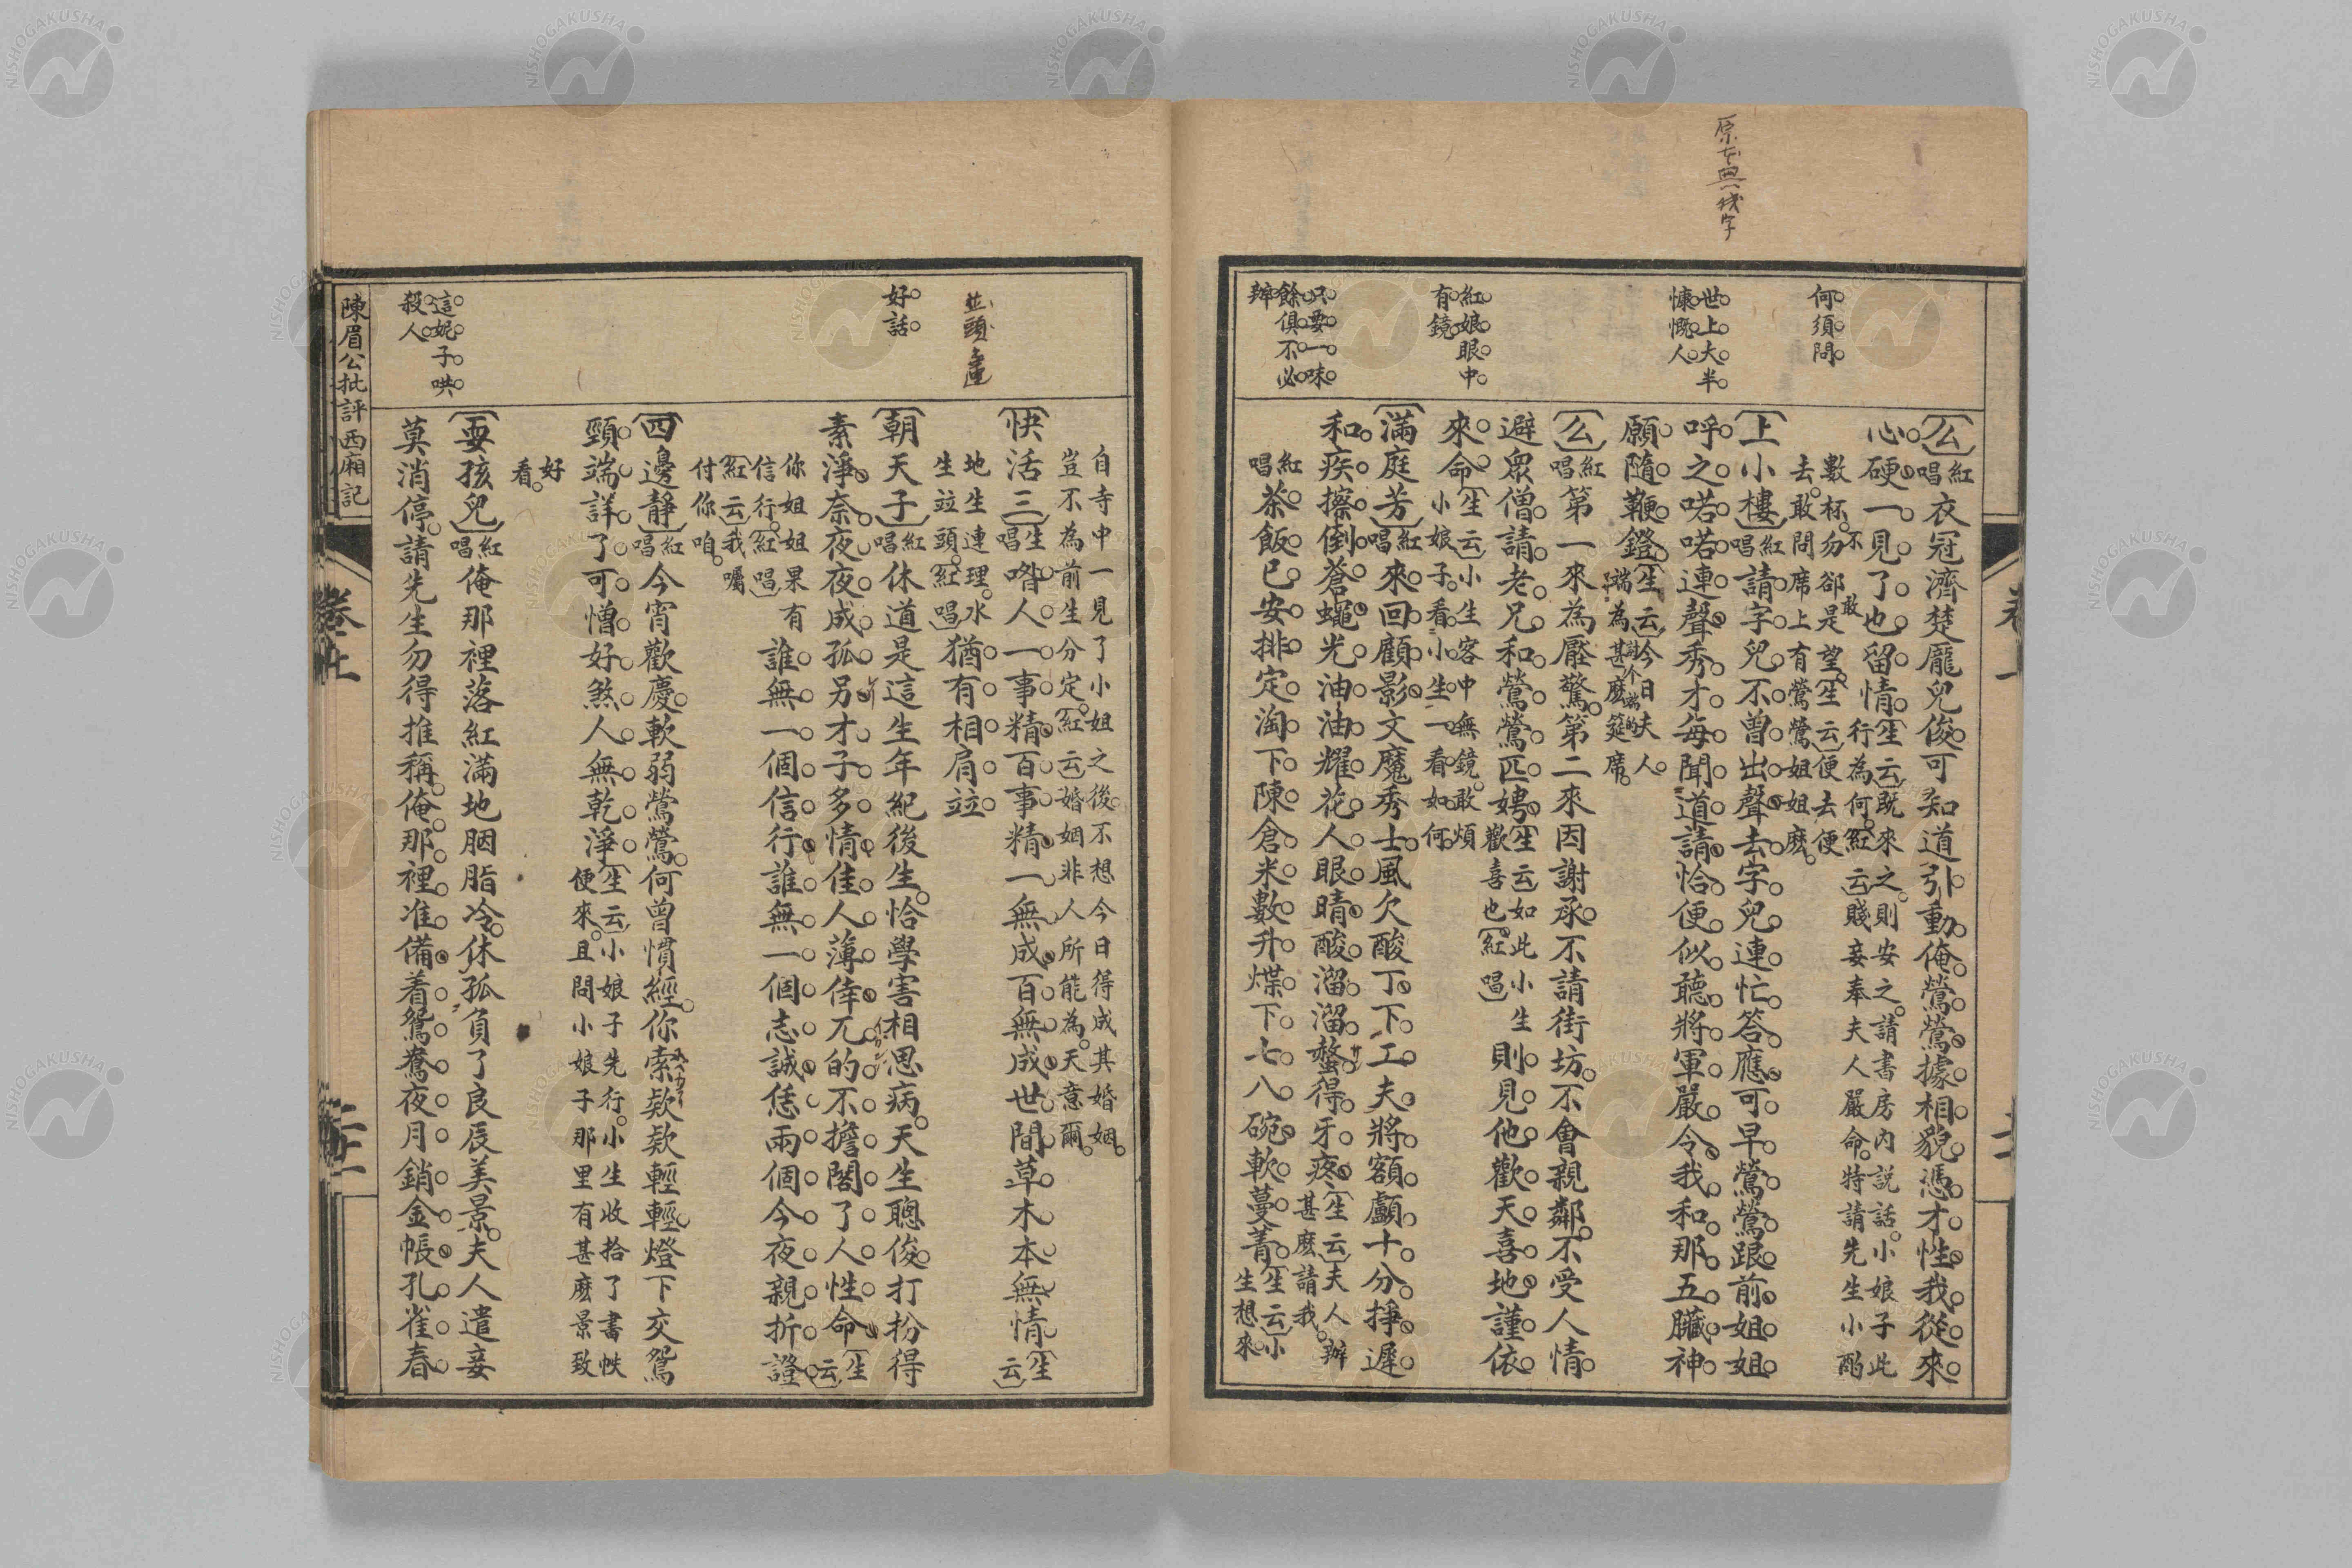 原本無幾字
何須問
世上大半
慷慨人
紅娘眼中
有鏡
只要一味
餘俱不必
辨
〔么〕紅唱衣冠濟楚龐兒俊。可知道引動俺鶯鶯。據相貌。憑才性。我從來
心硬。一見了也留情。〔生云〕既來之。則安之。請書房內説話。小娘子此
行為何。〔紅云〕賤妾奉夫人嚴命。特請先生小酌
數杯。勿郤是望。〔生云〕便去便
去。不敢敢問席上有鶯鶯姐姐麽。
〔上小樓〕紅唱請字兒不曾出聲。去字兒連忙答應。可早鶯鶯跟前姐姐
呼之。喏喏連聲。秀才每聞道請。恰便似聽將軍嚴令。我和那五臟神
願隨鞭鐙。〔生云〕今日夫人。
端為甚麽筵席。
〔么〕紅唱第一來為壓驚。第二來因謝承。不請街坊。不會親鄰。不受人情。
避眾僧。請老兄。和鶯鶯匹娉。〔生云〕如此小生
歡喜也。〔紅唱〕則見他歡天喜地。謹依
來命。〔生云〕小生客中無鏡。敢煩
小娘子看小生一看如何。
〔滿庭芳〕紅唱來回顧影。文魔秀士。風欠酸丁。下工夫將額顱十分掙。遲
和疾擦倒蒼蠅。光油油耀花人眼睛。酸溜溜螫得牙疼。〔生云〕夫人辦
甚麽請我。
紅唱茶飯已安排定。淘下陳倉米數升。煠下七八碗軟蔓菁。〔生云〕小
生想來。
並頭蓮
好話
這妮子哄
殺人
自寺中一見了小姐之後。不想今日得成其婚姻。
豈不為前生分定。〔紅云〕婚姻非人所能為。天意爾。
〔快活三〕生唱喒人一事精百事精。一無成百無成。世間草木本無情。〔生云〕
地生連理。水
生竝頭。〔紅唱〕猶有相肩竝
〔朝天子〕紅唱休道是這生年紀後生。恰學害相思病。天生聰俊。打扮得
素淨。奈夜夜成孤另。才子多情。佳人薄倖。兀的不擔閣了人性命。〔生云〕
你姐姐果有
信行。〔紅唱〕誰無一個信行。誰無一個志誠。恁兩個今夜親折證
〔紅云〕我囑
付你咱。
〔四邊靜〕紅唱今宵歡慶。軟弱鶯鶯。何曾慣經。你索欵欵輕輕。燈下交鴛
頸。端詳了可憎。好煞人無乾淨。〔生云〕小娘子先行。小生收拾了書帙
便來。且問小娘子那里有甚麽景致
好
看。
〔耍孩兒〕紅唱俺那裡落紅滿地胭脂冷。休孤負了良辰美景。夫人遣妾
莫消停。請先生勿得推稱。俺那裡准備着鴛鴦夜月銷金帳。孔雀春
陳眉公批評西廂記
卷上
二十二